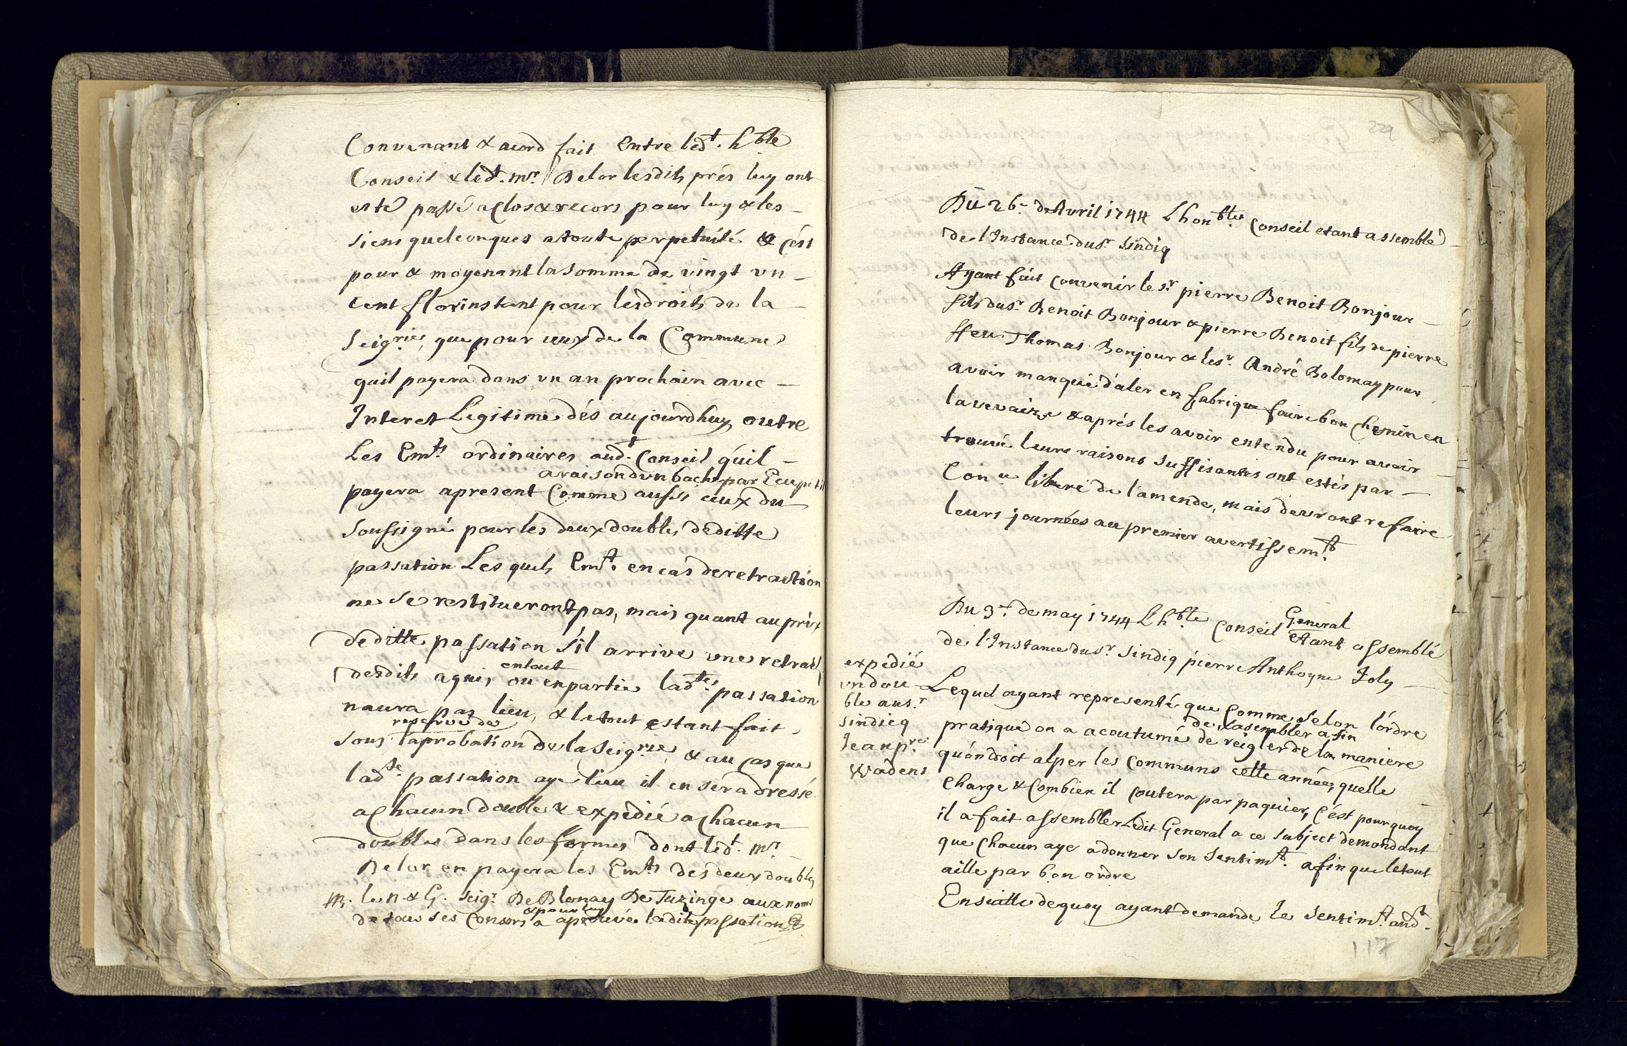 Convenant & acord fait Entre led.t h.ble
Conseil & led.t m.r Delor lesdits prés luy ont
esté passé a Clos & recors pour luy & les
siens quelconques a toute perpetuité & c'est
pour & moyenant la somme de vingt un
cent florins tant pour les droits de la
Seig.rie, que pour ceux de la Commune
quil payera dans un an prochain avec
Interest Legitime dés aujourdhuy outre
les Em.ts ordinaires aud.t Conseil quil
a raison d'un bache par Ecu petit
payera apresent Comme aussi ceux du
soussigné pour les deux doubles de ditte
passation Lesquels Em.ts en cas de retraction
ne se restitueront pas, mais quant au prix
de ditte passation s'il arrive une retrait
desdits aquis
entout
ou en partie lad.te passation
naura pas lieu, & le tout estant fait
reserves de
sous l'aprobation de la Seig.rie, & au cas que
lad.te passation aye lieu il en sera dressé
a Chacun double & expedié a Chacun
doubles dans les formes dont led.t m.r
Delor en payera les Em.ts des deux doubles
le n & G. Seig.r De Blonay De Tuzinge aux nom
& pour luy
de tous ses Consors a aprouvé ladite passation
229
Du 26.e de Avril 1744 Lhon.ble Conseil etant assemblé
de l'Instance du s.r Sindiq
Ayant fait convenir le s.r pierre Benoit Bonjour
fils du s.r Benoit Bonjour & pierre Benoit fils de pierre
ffeu Thomas Bonjour & le s.r André Bolomay pour
avoir manqué d'aler en fabrique faire bon Chemin en
lavevaize & aprés les avoir entendu pour avoir
trouvé leurs raisons suffisantes ont estés par
Con liberé de l'amende, mais devront refaire
leurs journées au premier avertissem.t
Du 3.e de may 1744 Lh.ble Conseil
General
etant assemblé
de l'Instance du s.r Sindiq pierre Anthoyne Joly
expedié
un dou-
ble au s.r
sindicq
Jean p.re
Wadens
Lequel ayant representé que Comme selon l'ordre
pratiqué on a acoutumé
de s'assembler afin
de reigler de la maniere
qu'on doit alper les Communs cette année, quelle
Charge & Combien il coutera par paquier, C'est pourquoy
il a fait assembler Ledit General a ce subject demandant
que Chacun aye a donner son sentim.t afin que le tout
aille par bon ordre
Ensuitte dequoy ayant demandé le sentim.t aud.t
117